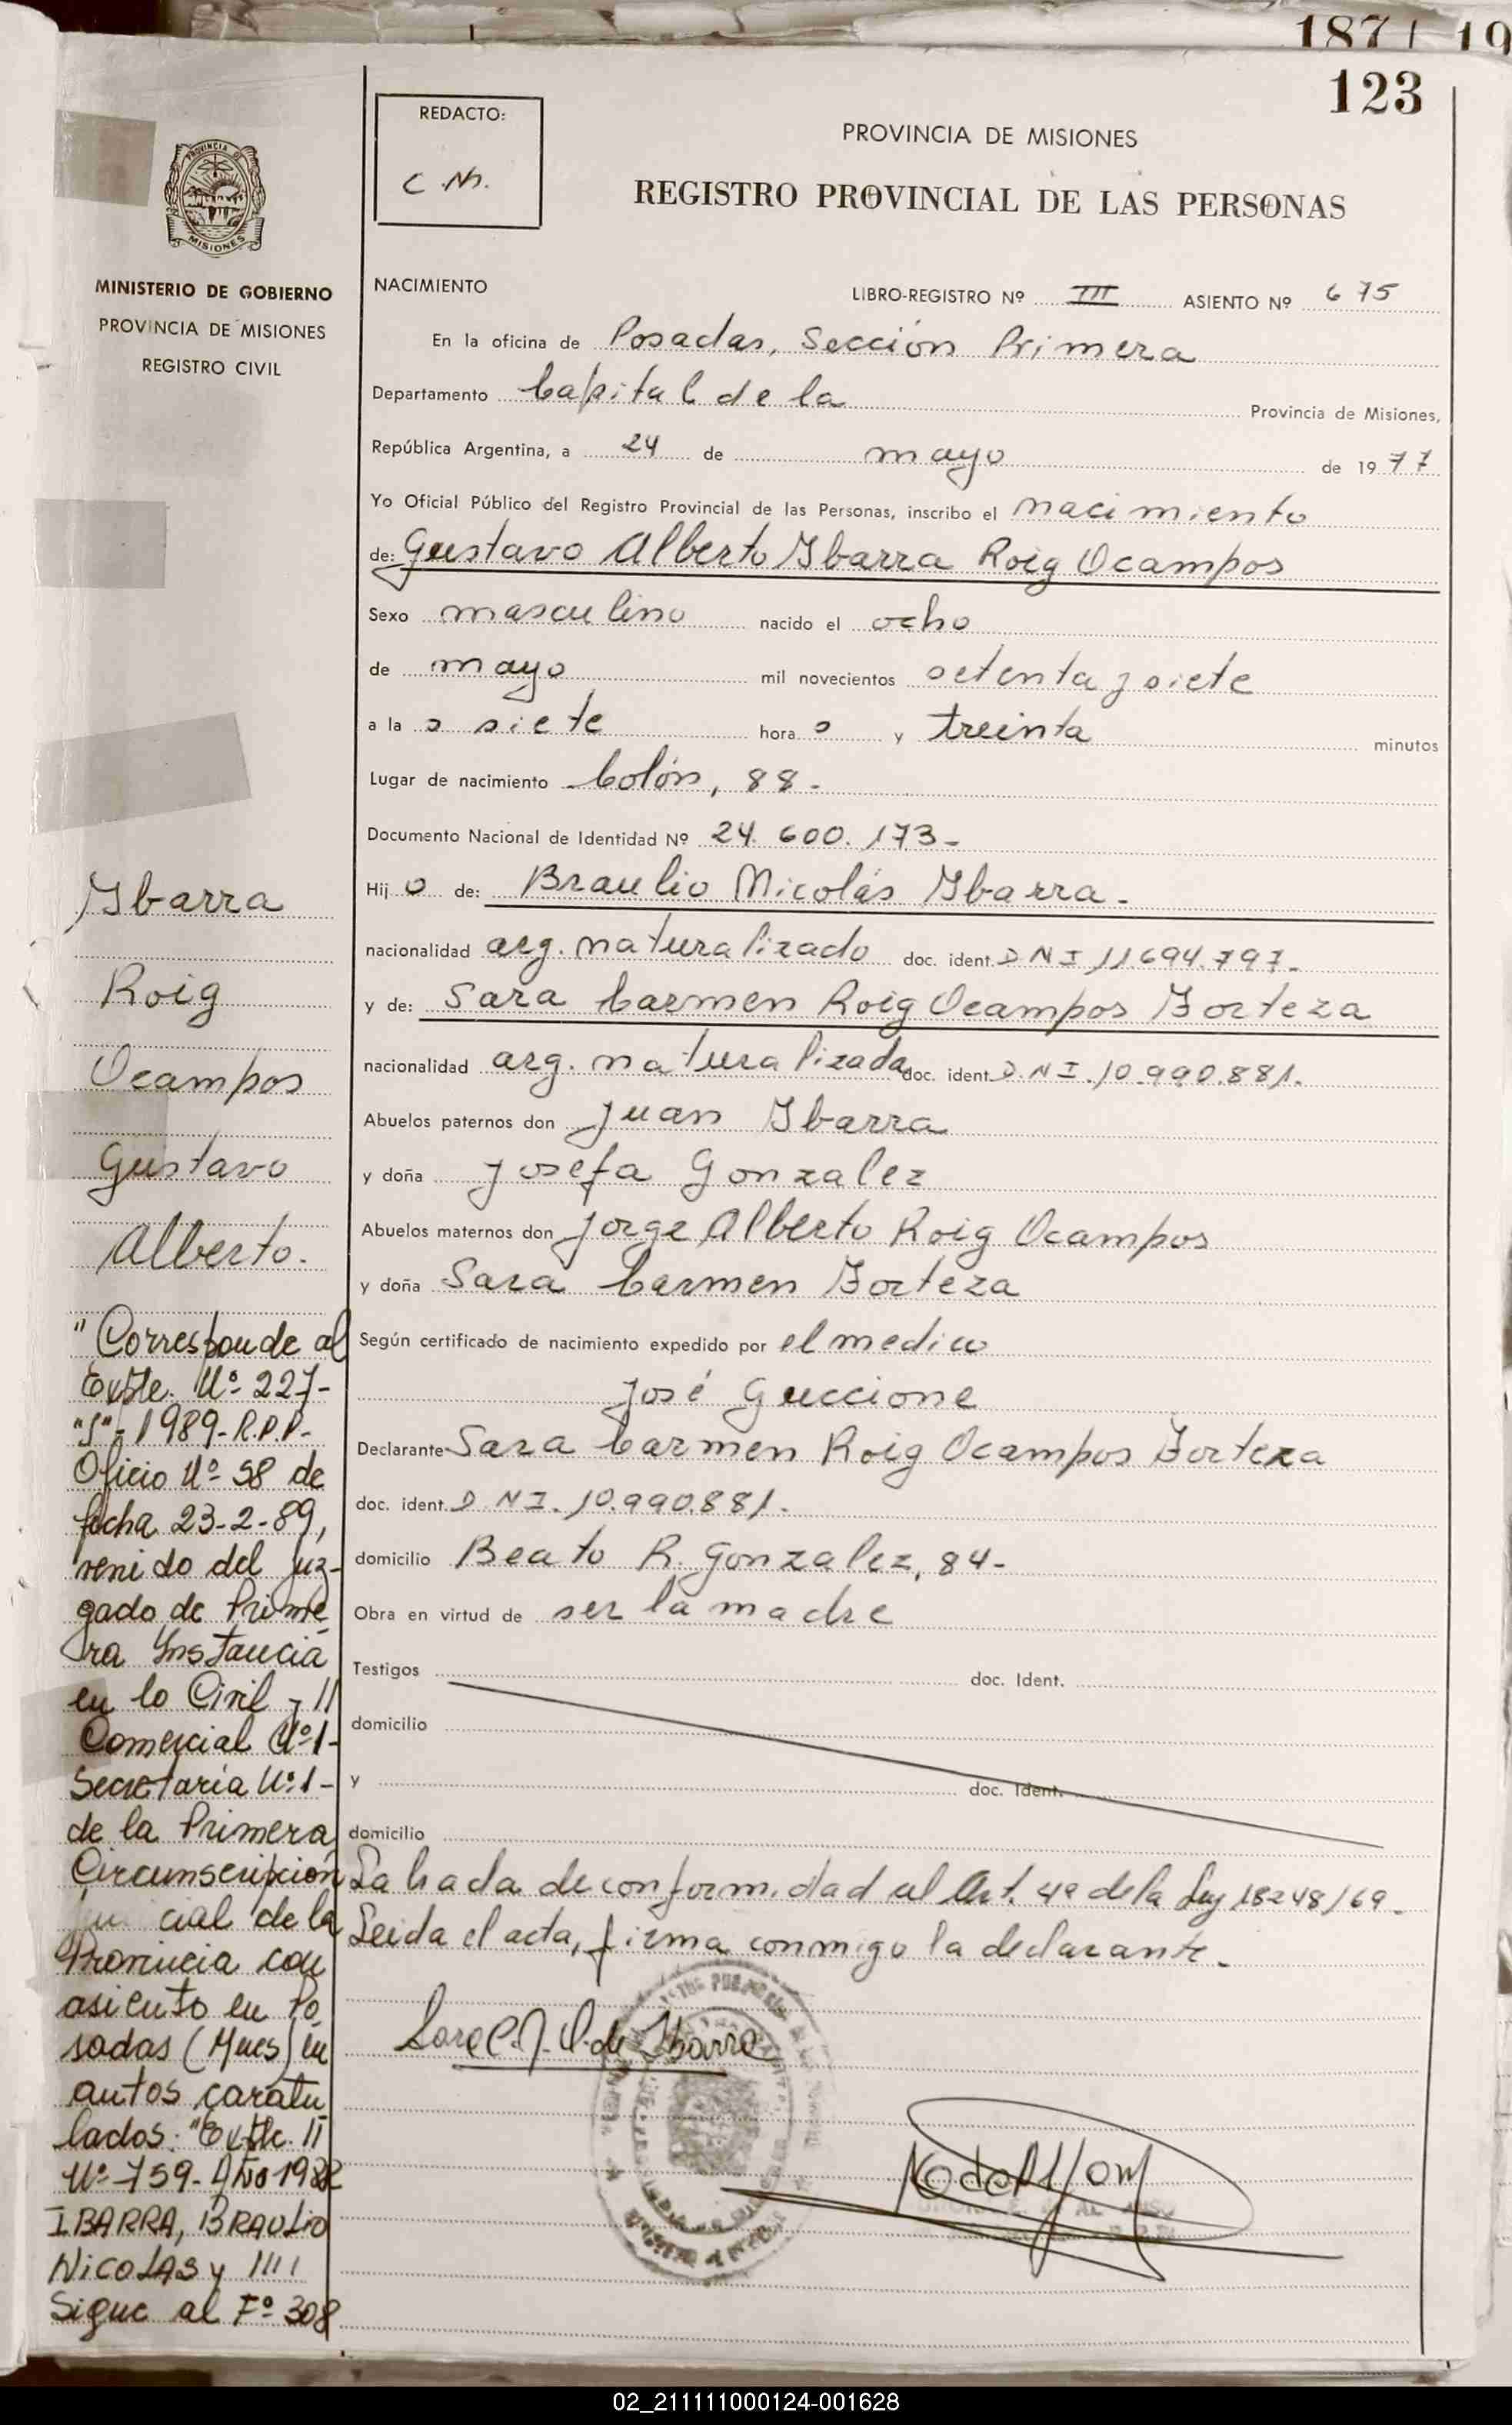 187 / 19
123
REDACTO:
C.M.
PROVINCIA DE MISIONES
REGISTRO PROVINCIAL DE LAS PERSONAS
PROVINCIA DE
MISIONES
MINISTERIO DE GOBIERNO
PROVINCIA DE MISIONES
REGISTRO CIVIL
NACIMIENTO
LIBRO-REGISTRO Nº III ASIENTO Nº 675
En la oficina de Posadas, Sección Primera
Departamento Capital de la Provincia de Misiones,
República Argentina, a 24 de mayo de 1977
Yo Oficial Público del Registro Provincial de las Personas, inscribo el nacimiento
de: Gustavo Alberto Ibarra Roig Ocampos
Sexo masculino nacido el ocho
de mayo mil novecientos setenta y siete
a las siete horas y treinta minutos
Lugar de nacimiento Colón, 88-
Documento Nacional de Identidad Nº 24.600.173-
Hijo de: Braulio Nicolás Ibarra-
nacionalidad arg. naturalizado doc. ident. DNI 11.694.797-
y de: Sara Carmen Roig Ocampos Forteza
nacionalidad arg. naturalizada doc. ident. D.N.I. 10.990.881.
Abuelos paternos don Juan Ibarra
y doña Josefa Gonzalez
Abuelos maternos don Jorge Alberto Roig Ocampos
y doña Sara Carmen Forteza
Según certificado de nacimiento expedido por el medico
José Guccione
Declarante Sara Carmen Roig Ocampos Forteza
doc. ident. D.N.I. 10.990.881.
domicilio Beato R. Gonzalez, 84-
Obra en virtud de ser la madre
Testigos doc. Ident.
domicilio
y doc. Ident.
domicilio
La hada de conformidad al Art. 4º de la Ley 18248/69.
Leida el acta, firma conmigo la declarante.
Ibarra
Roig
Ocampos
Gustavo
Alberto.
"Corresponde al
Expte. Nº 227-
1989-R.P.P.-
Oficio Nº 58 de
fecha 23-2-89,
venido del Juz-
gado de Prime-
ra Instancia
en lo Civil y //
Comercial Nº 1-
Secretaría Nº 1-
de la Primera
Circunscripción
cial de la
Provincia con
asiento en Po-
sadas (Mnes) en
autos caratu
lados: "Expte. //
Nº 759- Año 1988
IBARRA, BRAULIO
NICOLAS y ////
Sigue al Fº 308
de Ibarra
02_211111000124-001628